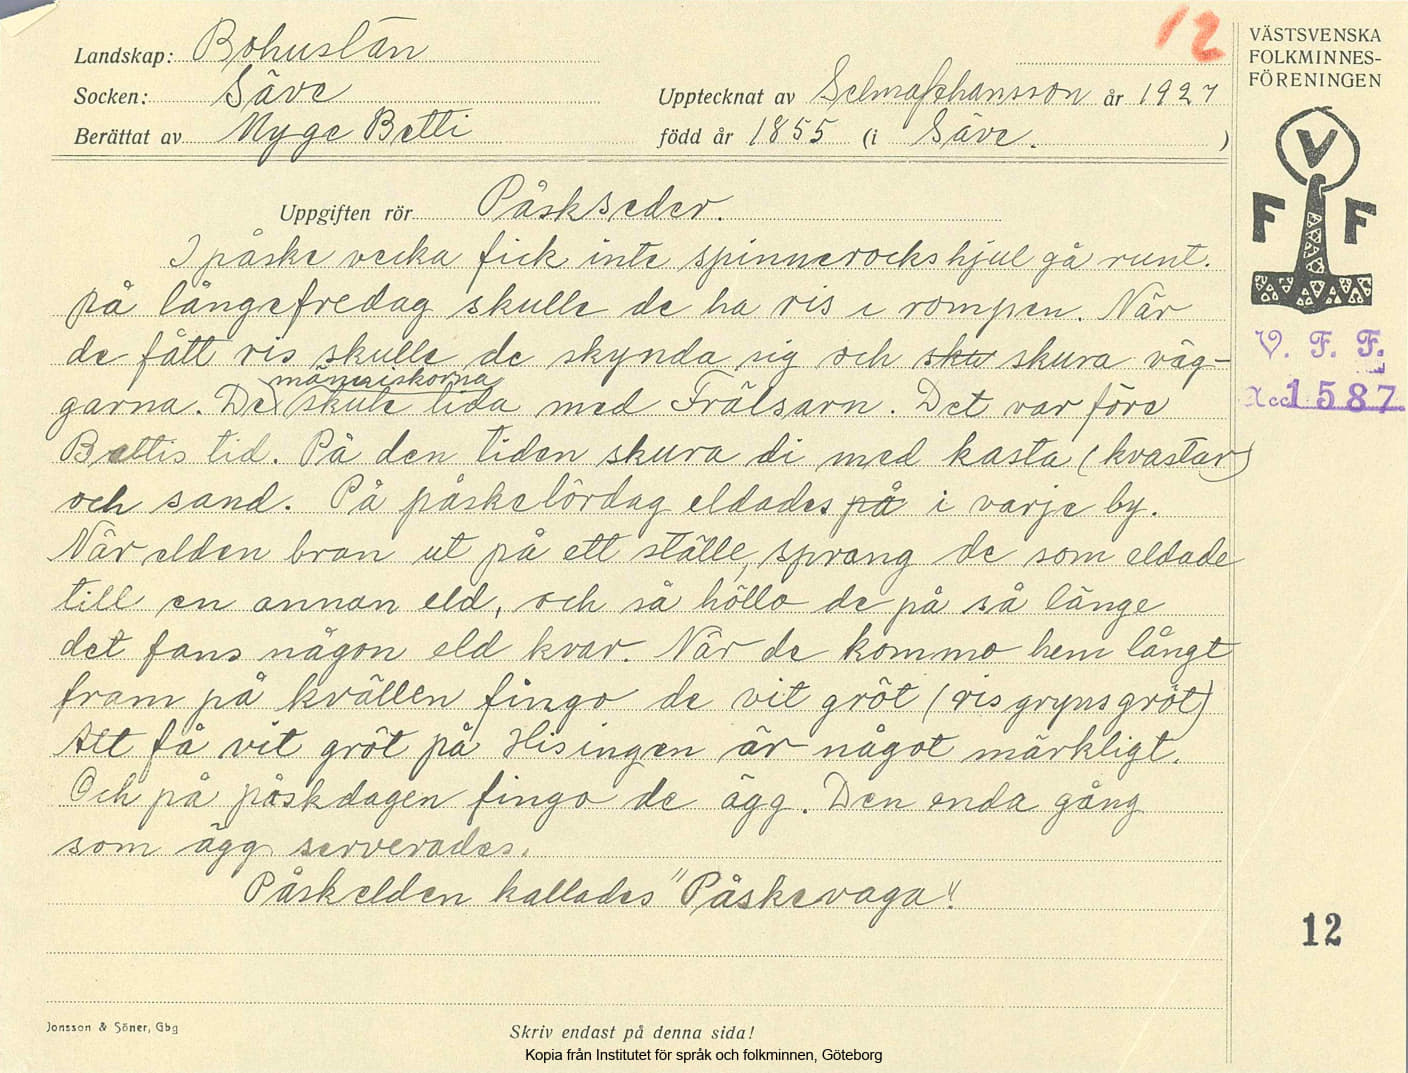 12
VÄSTSVENSKA
FOLKMINNES-
FÖRENINGEN
Landskap: Bohuslän
Socken: Säve
Upptecknat av Selma Johansson år 1927
Berättat av Nyge Betti
född år 1855 (i Säve. )
V
F F
Uppgiften rör Påskseder.
I påske vecka fick inte spinnerockshjul gå runt.
På långefredag skulle de ha ris i rompen. När
de fått ris skulle de skynda sig och sku skura väg-
människorna
garna. De skule lida med Frälsarn. Det var före
Bettis tid. På den tiden skura di med kasta (kvastar)
och sand. På påskelördag eldades på i varje by.
När elden bran ut på ett ställe, sprang de som eldade
till en annan eld, och så höllo de på så länge
det fans någon eld kvar. När de kommo hem långt
fram på kvällen fingo de vit gröt (risgrynsgröt)
Att få vit gröt på Hisingen är något märkligt.
Och på påskdagen fingo de ägg. Den enda gång
som ägg serverades.
Påskelden kallades "Påskevaga".
V. F. F.
Acc 1587
12
Jonsson & Söner, Gbg
Skriv endast på denna sida!
Kopia från Institutet för språk och folkminnen, Göteborg